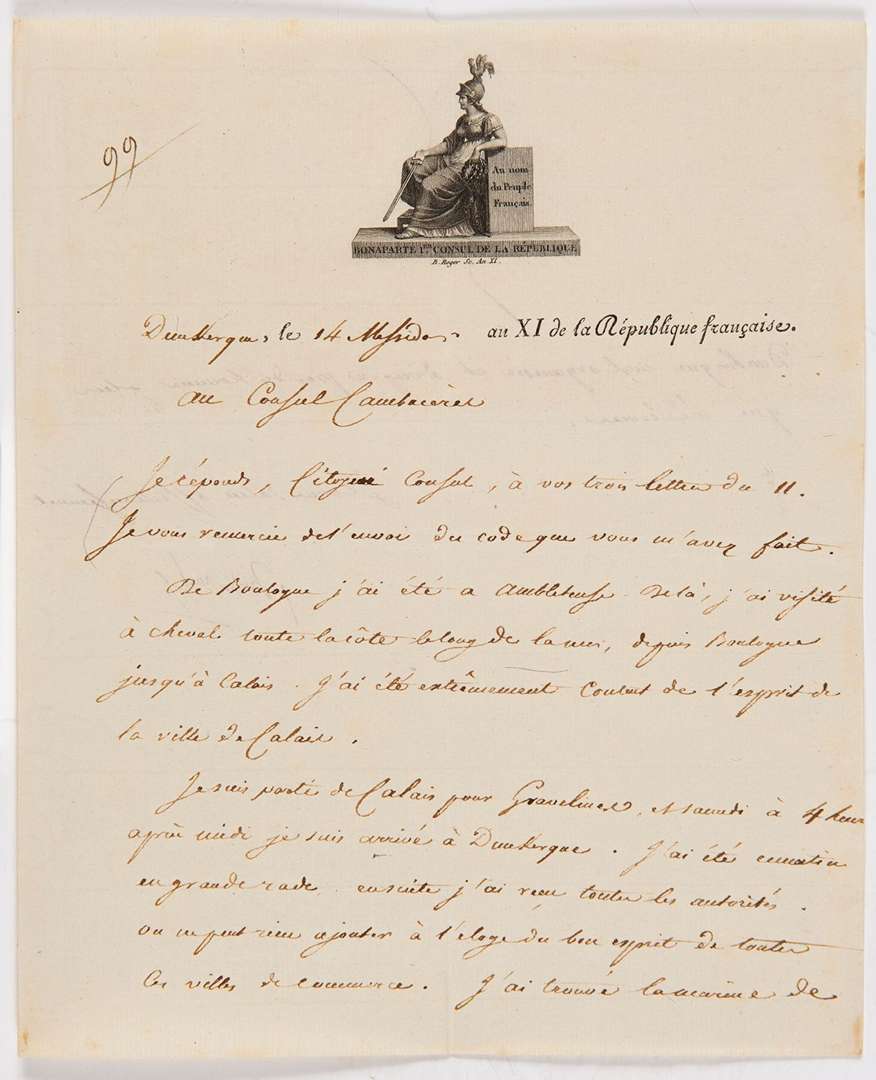 99
Au nom
du Peuple
Français.
BONAPARTE 1er. CONSUL DE LA RÉPUBLIQUE
B. Roger Sc. An XI.
Dunkerque, le 14 Messidor an XI de la République française.
au Consul Cambacérès
Je réponds, Citoyen Consul, à vos trois lettres du 11.
Je vous remercie de l'envoi du code que vous m'avez fait.
De Boulogne j'ai été a Ambleteuse. De là, j'ai visité
à cheval toute la côte le long de la mer, depuis Boulogne
jusqu'à Calais. J'ai été extrêmement content de l'esprit de
la ville de Calais.
Je suis parti de Calais pour Gravelines, et samedi à 4 heures
après midi je suis arrivé à Dunkerque. J'ai été ce matin
en grande rade. ensuite j'ai reçu toutes les autorités.
on ne peut rien ajouter à l'éloge du bon esprit de toutes
les villes de commerce. J'ai trouvé la marine de